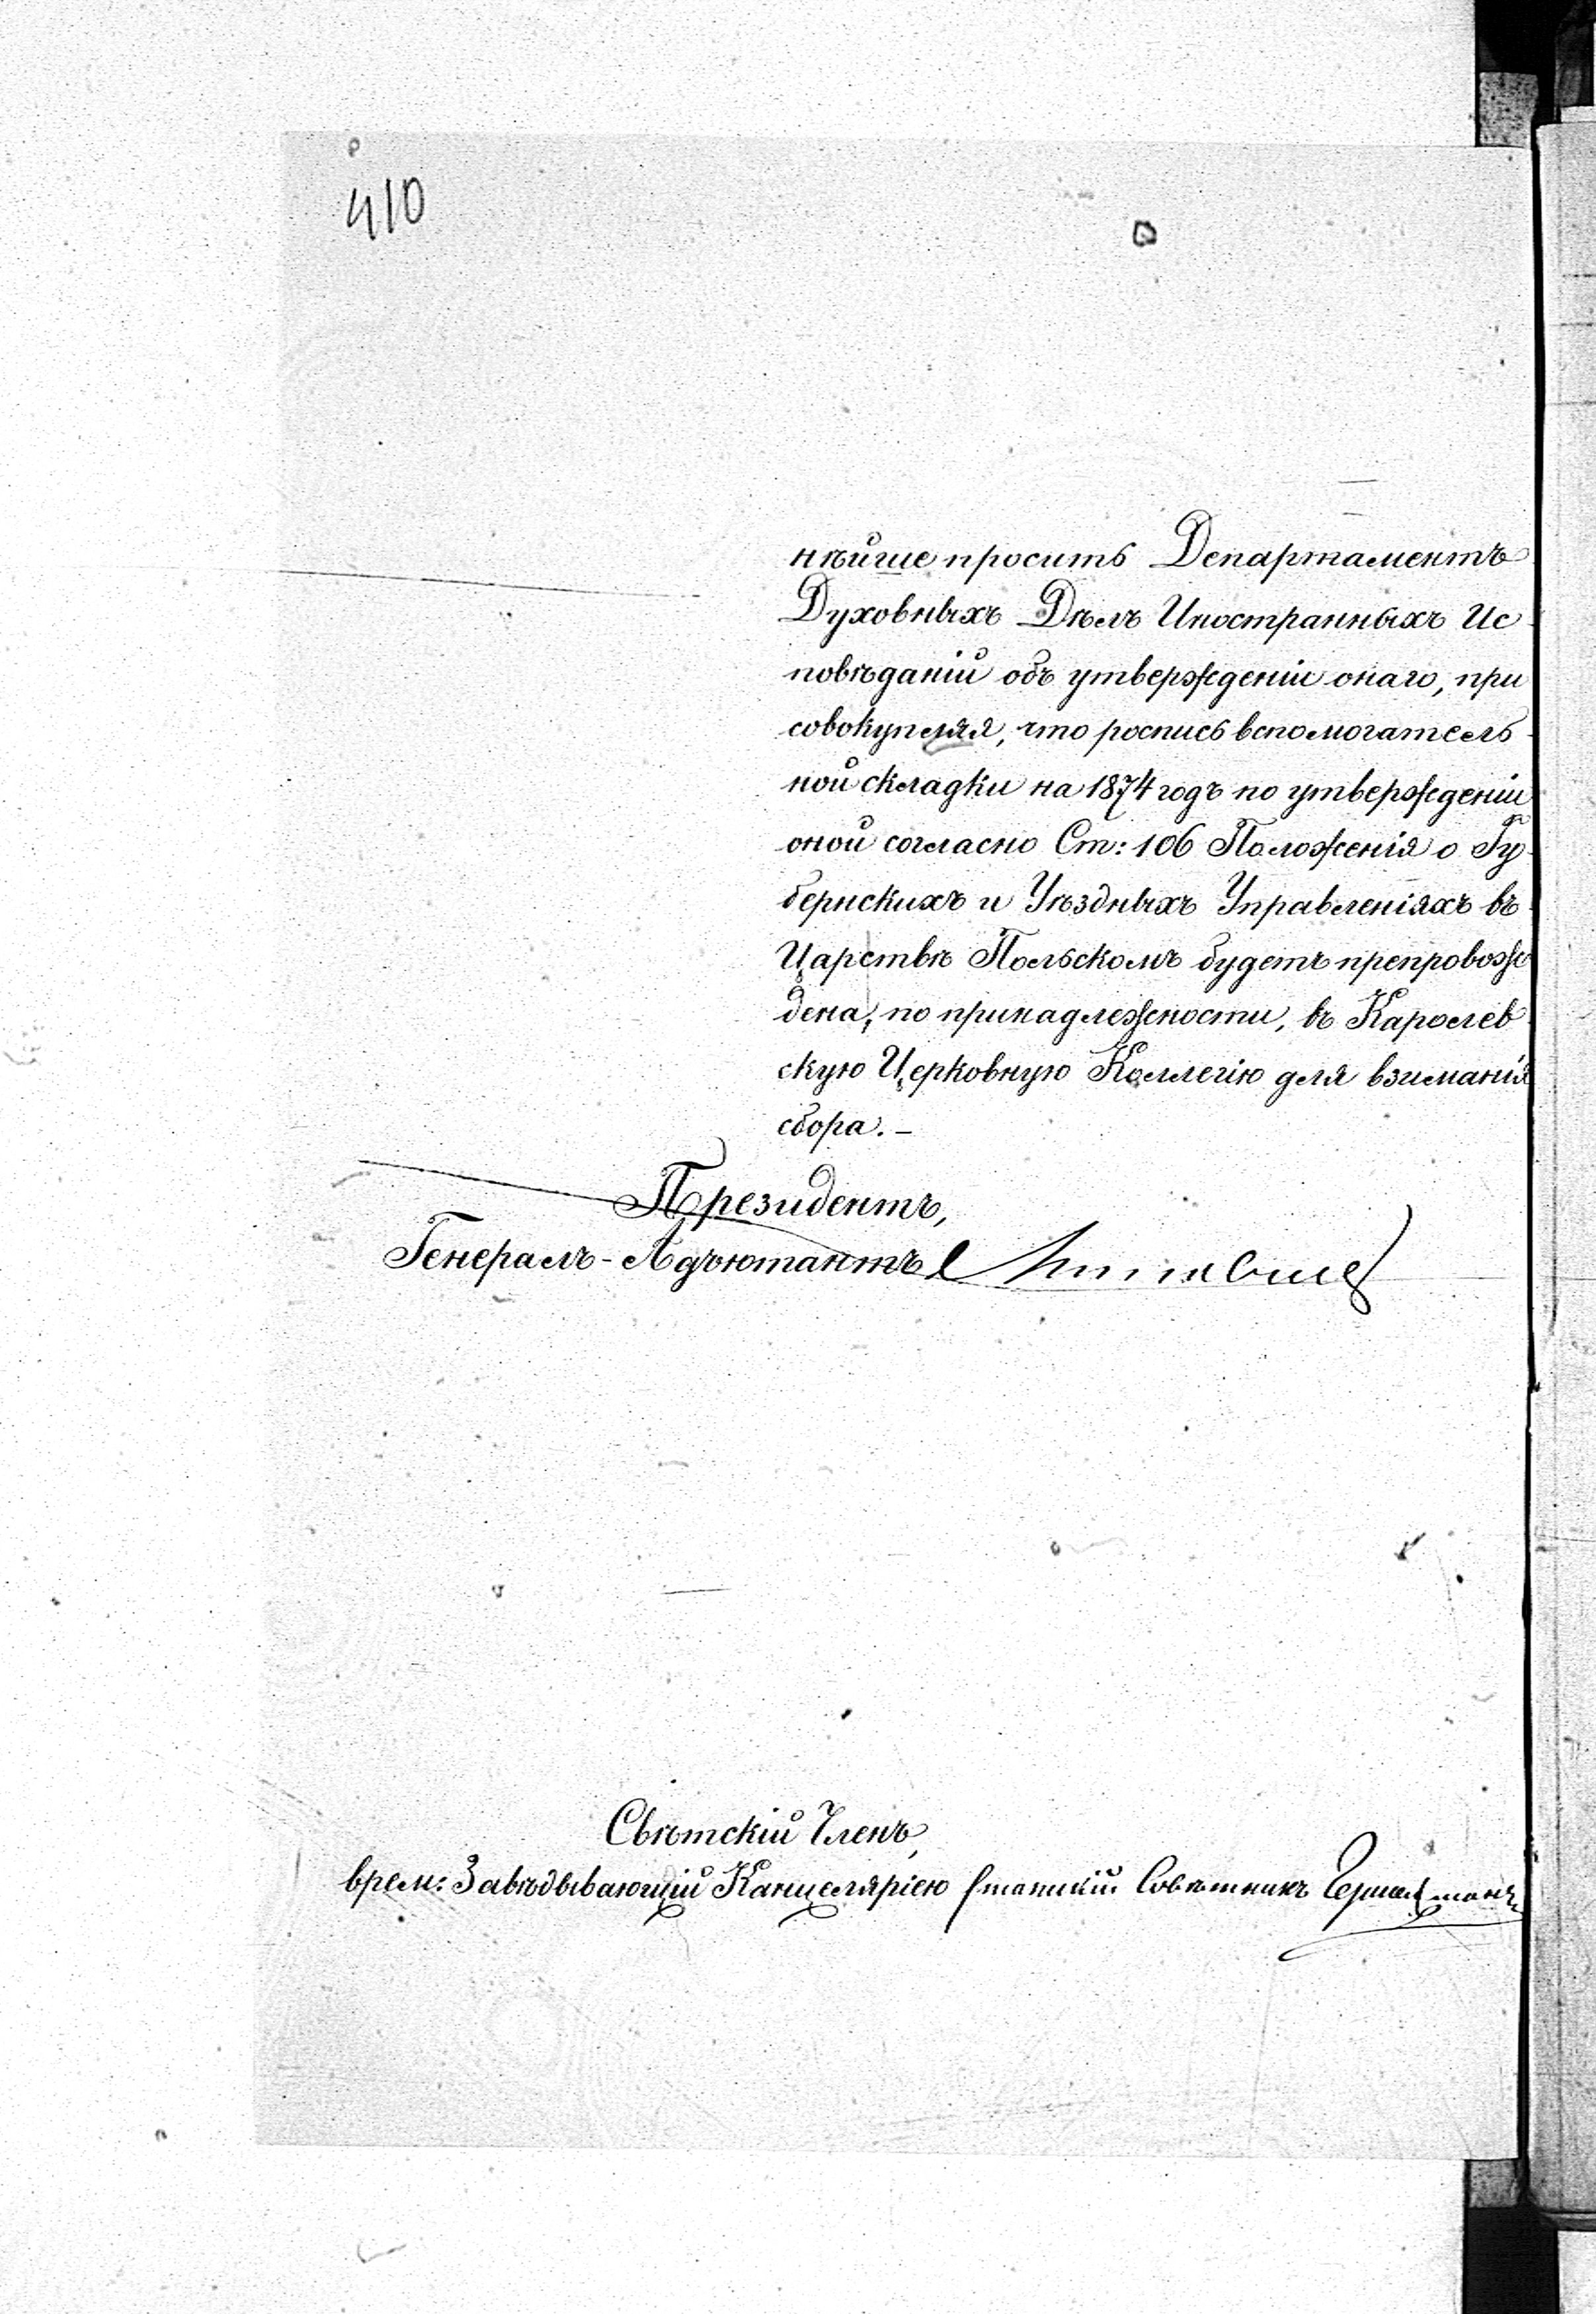 410
нѣйше проситъ Департаментъ
Духовныхъ Дѣлъ Иностранныхъ Ис-
повѣданій объ утвержденіи онаго, при
совокупляя, что роспись вспомогатель-
ной складки на 1874 годъ по утвержденіи
оной согласно Ст: 106 Положенія о Гу-
бернскихъ и Уѣздныхъ Управленіяхъ въ
Царствѣ Польскомъ будетъ препровож
дена, по принадлежности, въ Каролев-
скую Церковную Коллегію для взиманія
сбора. –
Президентъ,
Генералъ-Адъютантъ
Свѣтскій Членъ,
врем: Завѣдывающій Канцеляріею Статскій Совѣтникъ